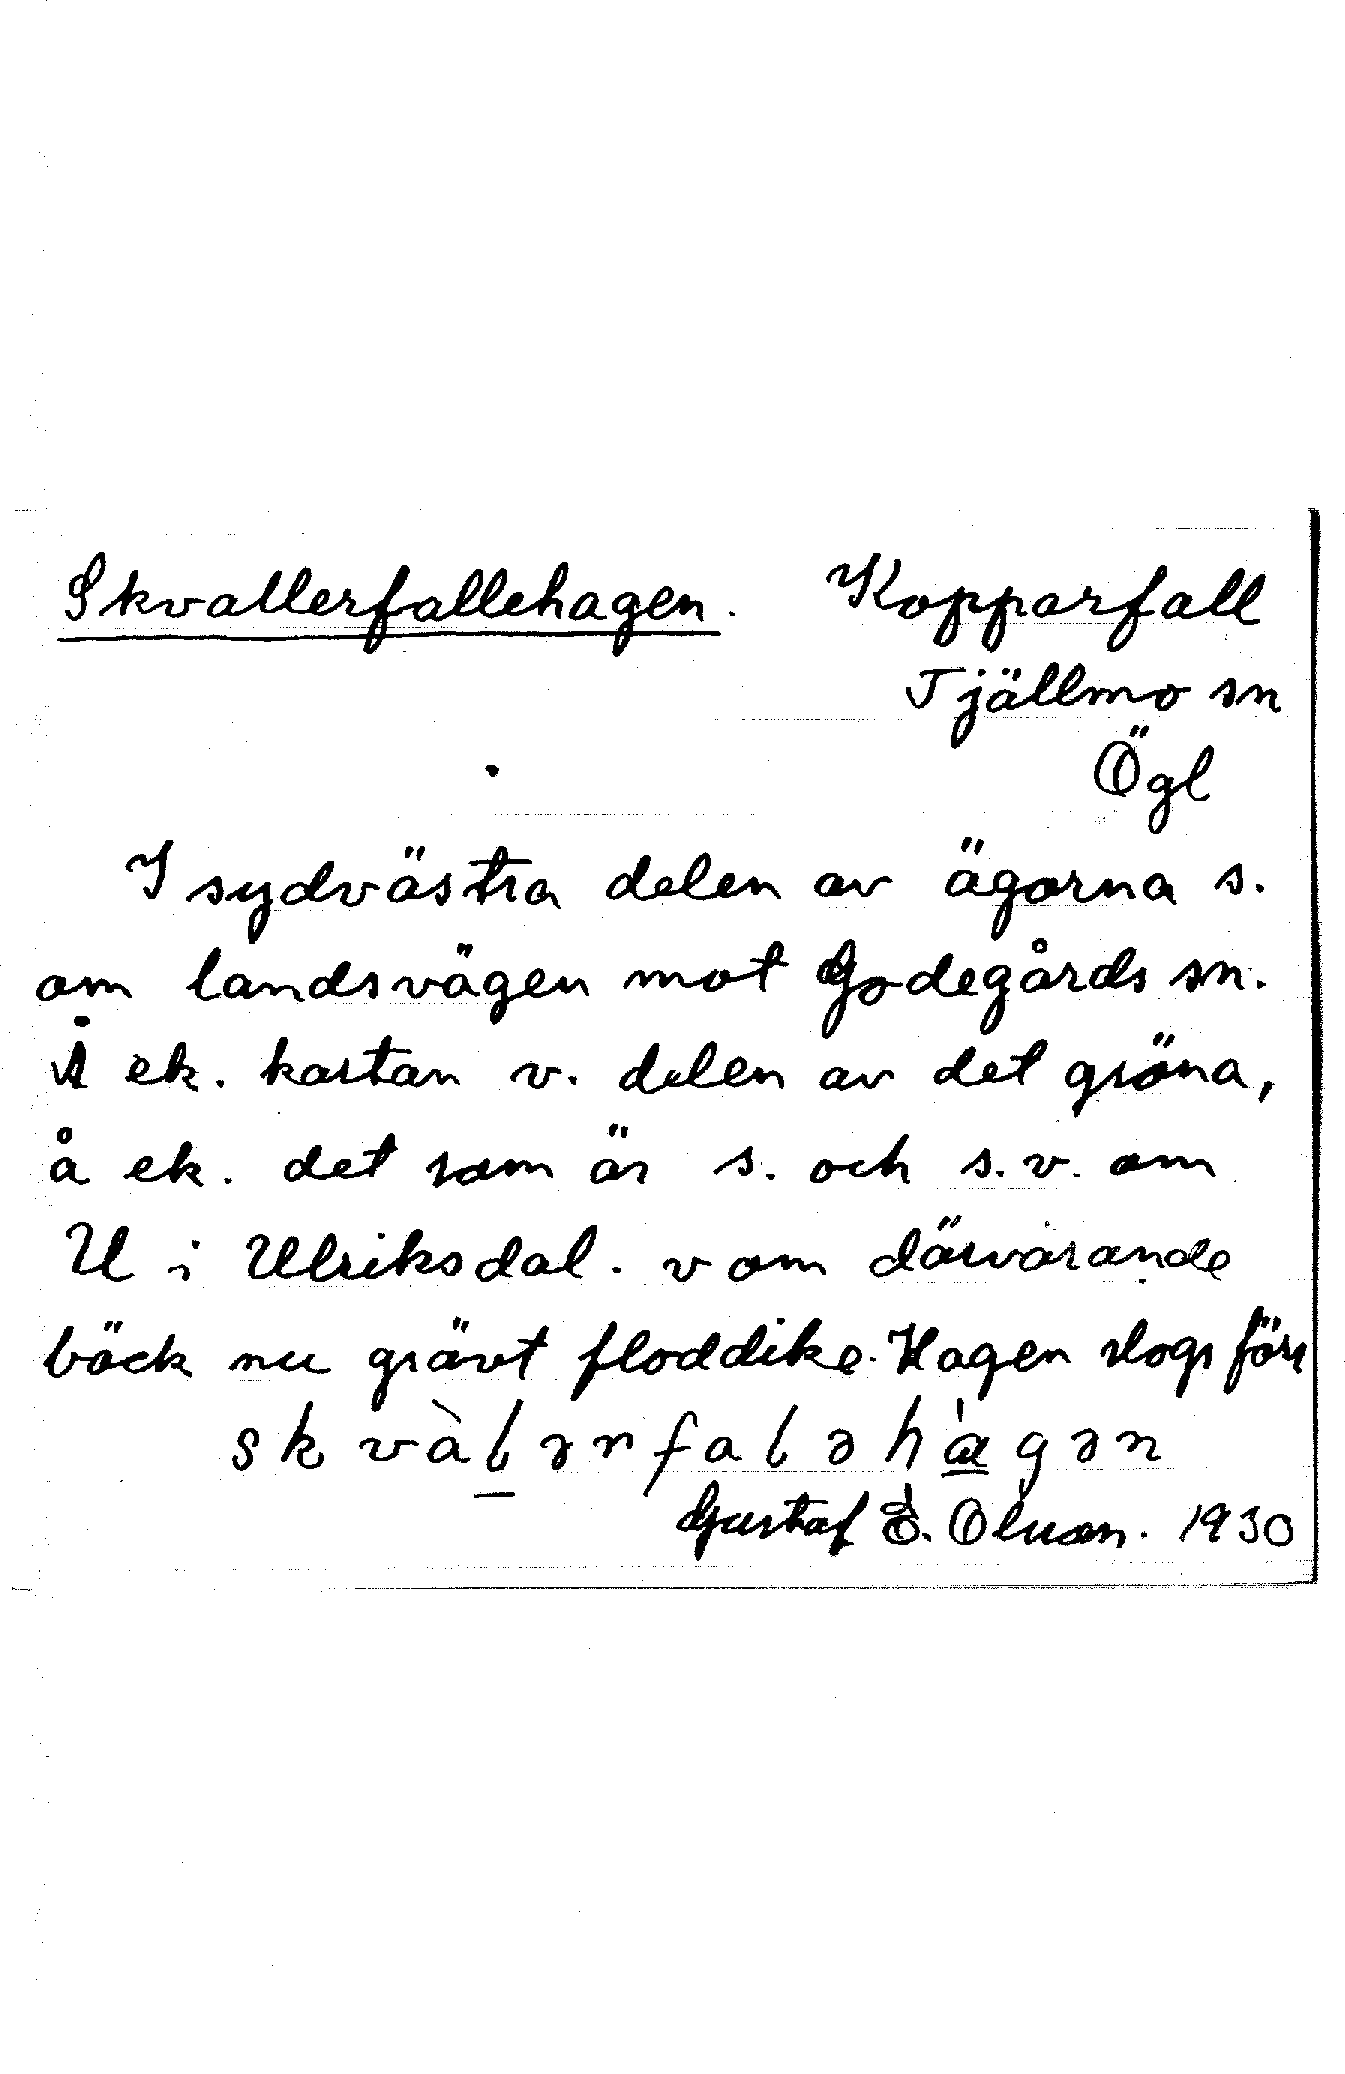 Skvallerfallehagen. Kopparfall
Tjällmo sn
Ögl
I sydvästra delen av ägorna s.
om landsvägen mot Godegårds sn.
Å ek. kartan v. delen av det gröna,
å ek. det som är s. och s.v. om
U i Ulriksdal. v om därvarande
bäck nu grävt floddike. Hagen slogs förr
skvàlərfaləhàgən
Gustaf E. Olsson. 1930